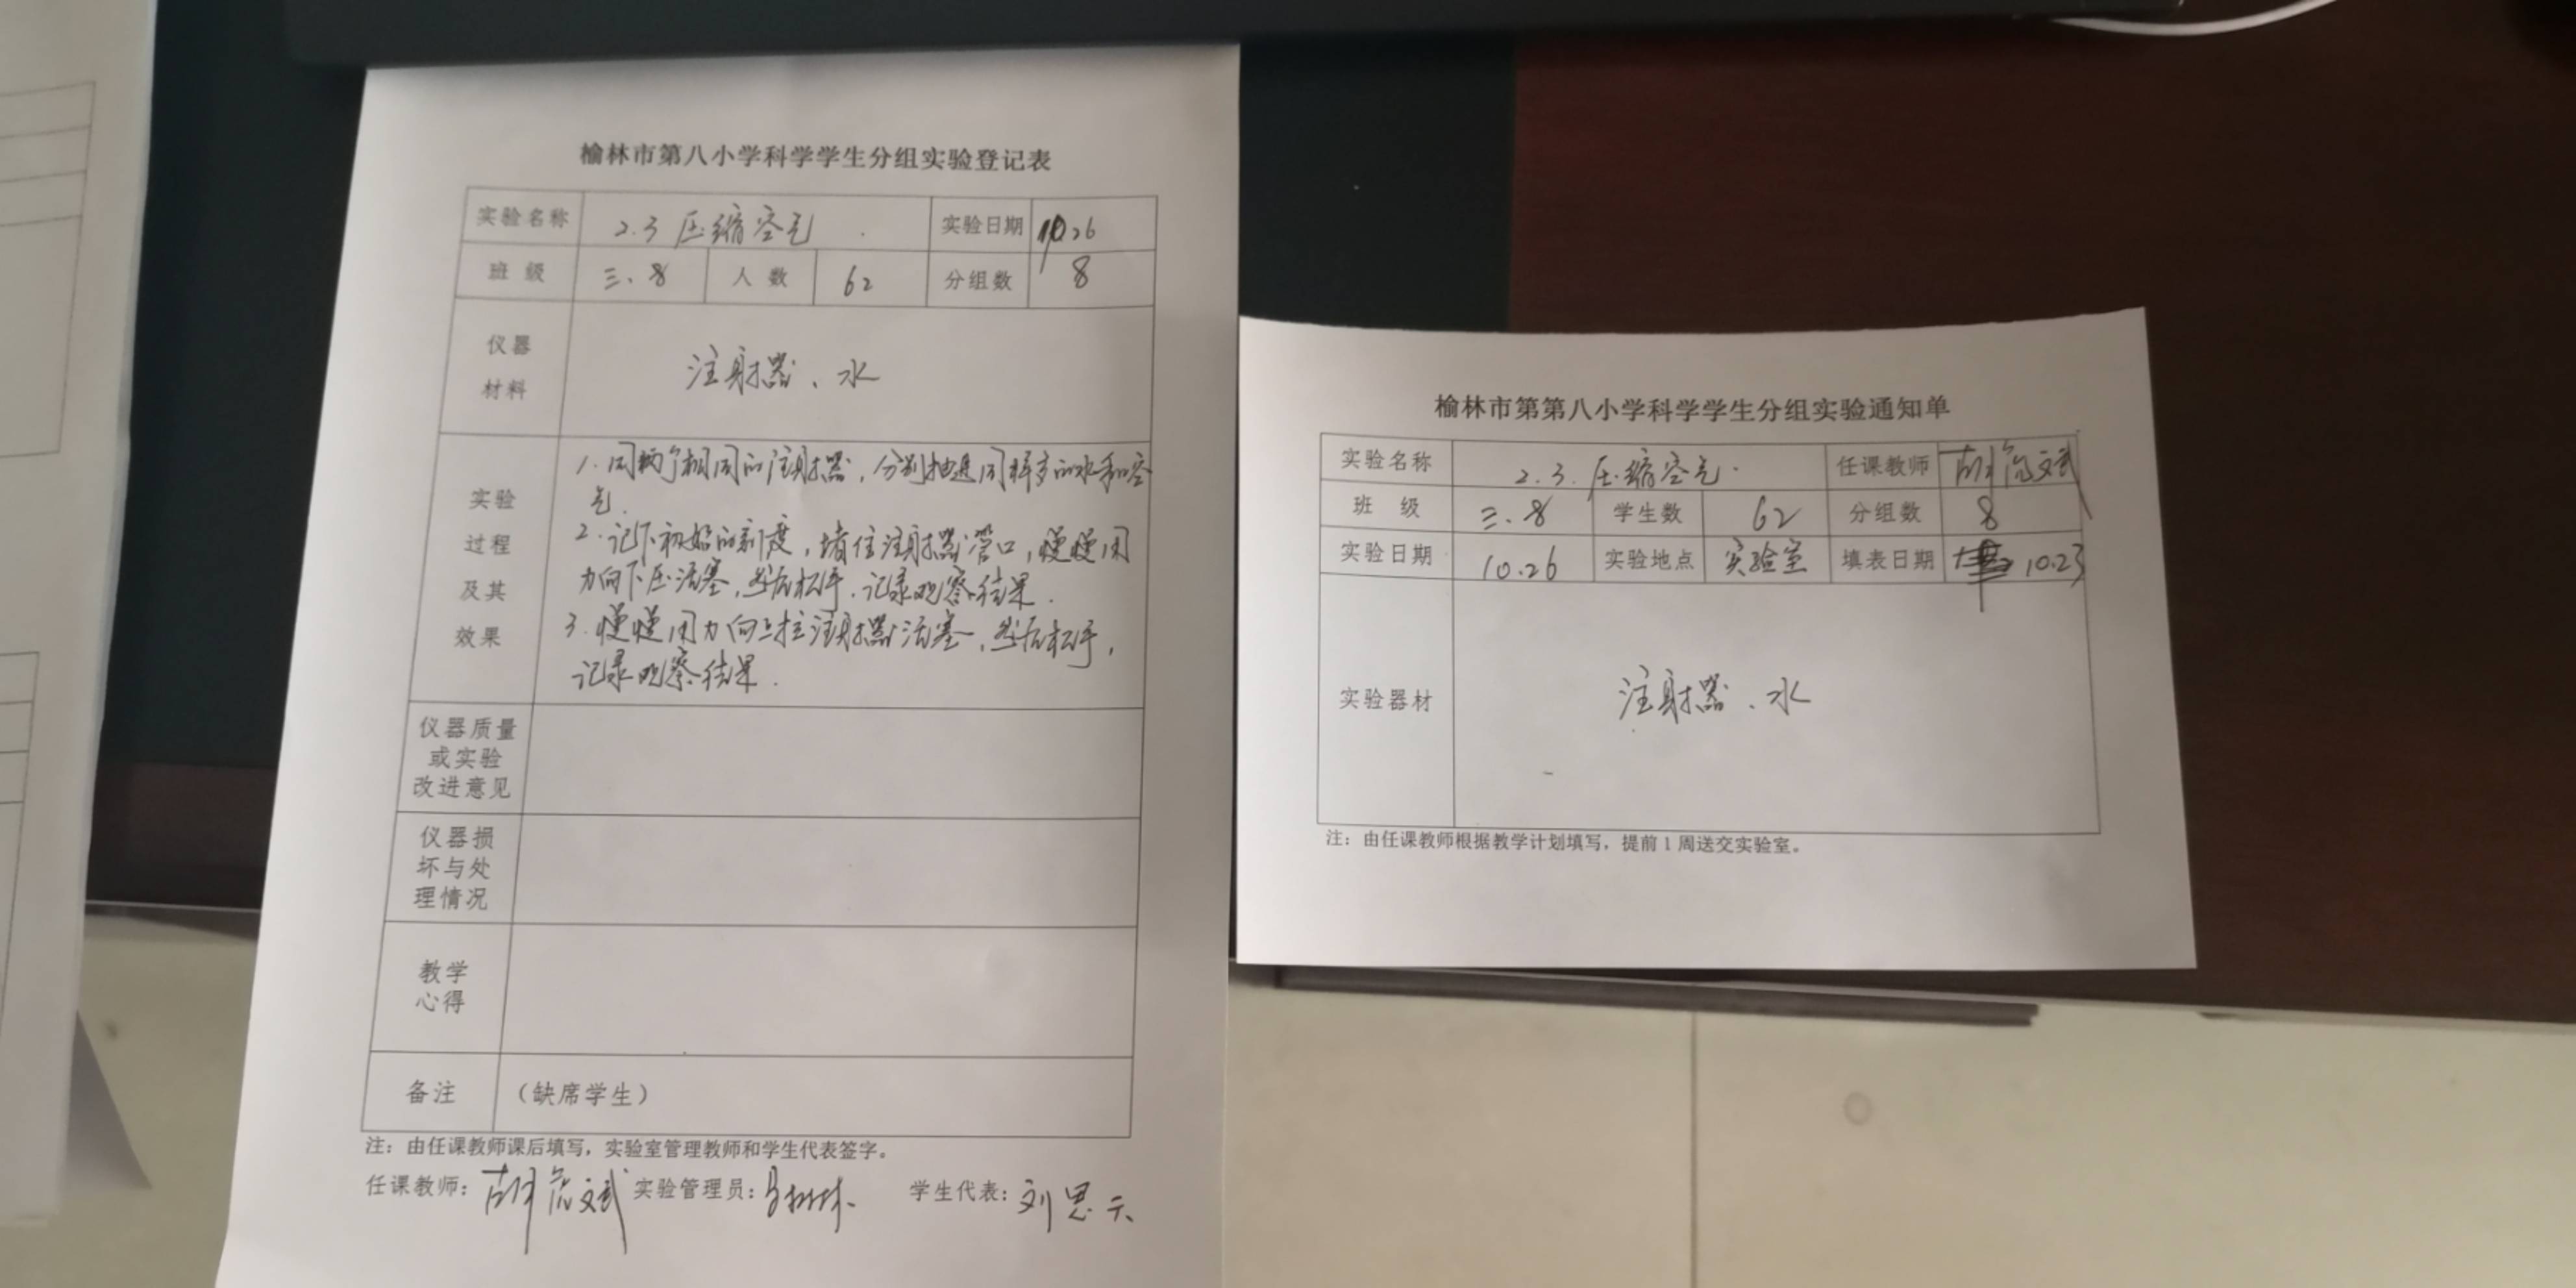 榆林市第八小学科学学生分组实验登记表
实验名称 2.3 压缩空气 实验日期 10.26
班 级 三.8 人 数 62 分组数 8
仪器
材料
注射器、水
实验
过程
及其
效果
1.用两个相同的注射器,分别抽进同样多的水和空
气.
2.记下初始的刻度,堵住注射器管口,慢慢用
力向下压活塞,然后松手.记录观察结果.
3.慢慢用力向上拉注射器活塞,然后松手,
记录观察结果.
仪器质量
或实验
改进意见
仪器损
坏与处
理情况
教学
心得
备注 (缺席学生)
注:由任课教师课后填写,实验室管理教师和学生代表签字。
任课教师: 实验管理员: 学生代表:刘思
榆林市第第八小学科学学生分组实验通知单
实验名称 2.3.压缩空气. 任课教师
班 级 三.8 学生数 62 分组数 8
实验日期 10.26 实验地点 实验室 填表日期 10.23
实验器材 注射器、水
注:由任课教师根据教学计划填写,提前1周送交实验室。